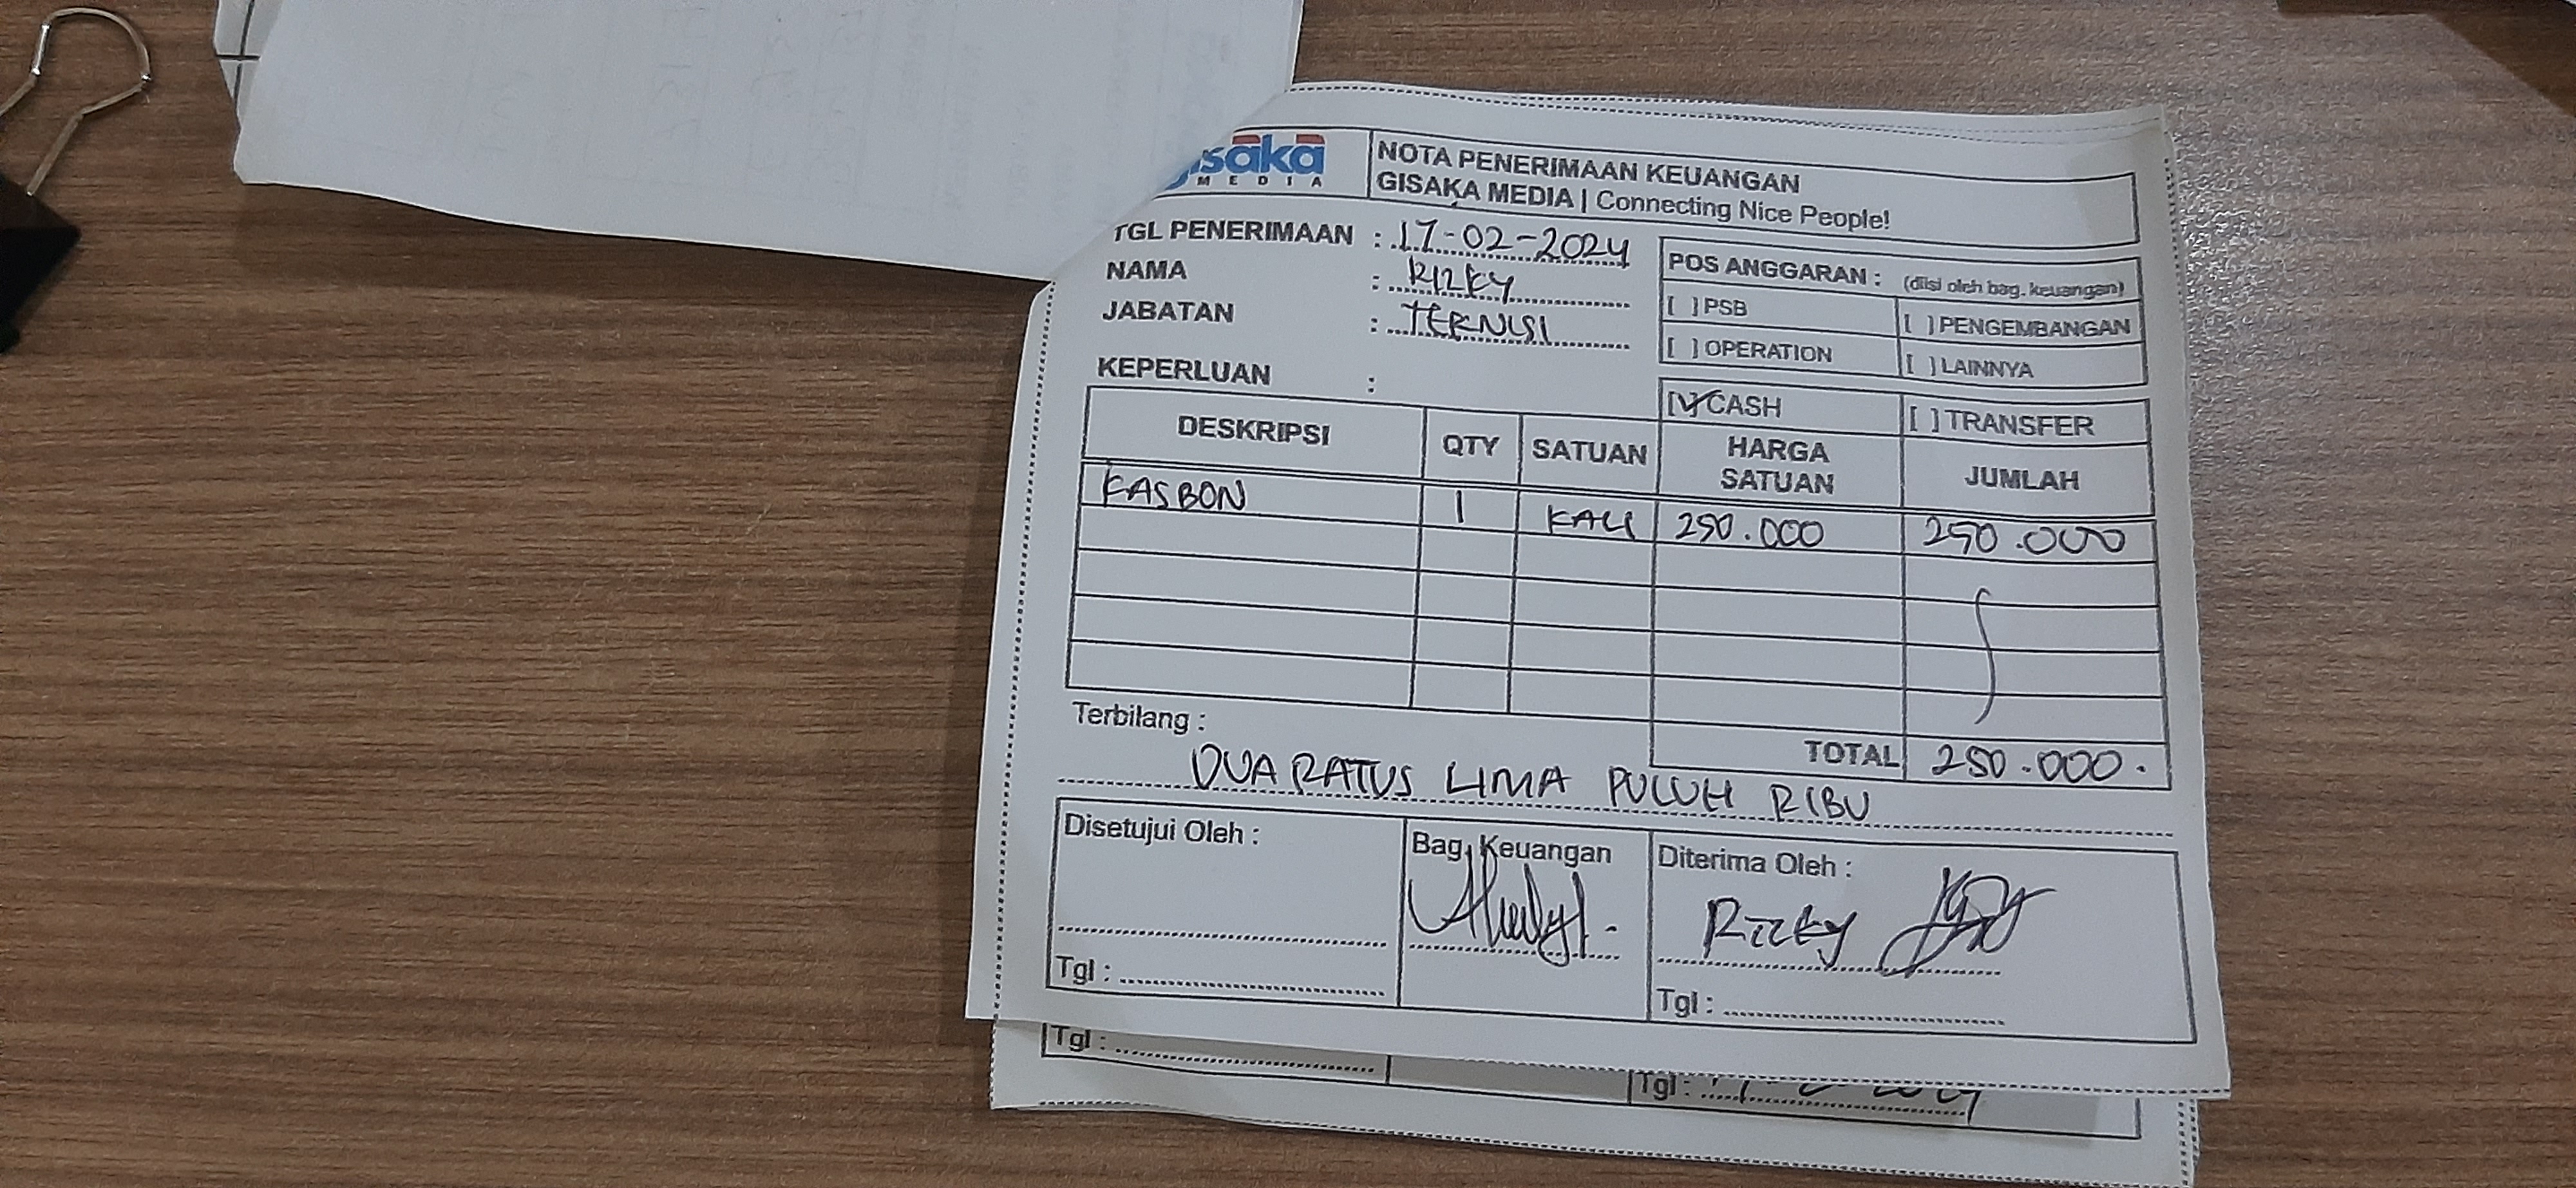 isaka
MEDIA
NOTA PENERIMAAN KEUANGAN
GISAKA MEDIA | Connecting Nice People!
TGL PENERIMAAN : 17-02-2024
NAMA : RIZKY
JABATAN : TEKNISI
KEPERLUAN :
POS ANGGARAN : (diisi oleh bag. keuangan)
[ ] PSB [ ] PENGEMBANGAN
[ ] OPERATION [ ] LAINNYA
[✓] CASH [ ] TRANSFER
DESKRIPSI QTY SATUAN HARGA SATUAN JUMLAH
KASBON 1 KALI 250.000 250.000
TOTAL 250.000.
Terbilang :
DUA RATUS LIMA PULUH RIBU
Disetujui Oleh : Bag. Keuangan Diterima Oleh :
Rizky
Tgl : Tgl :
Tgl : Tgl :